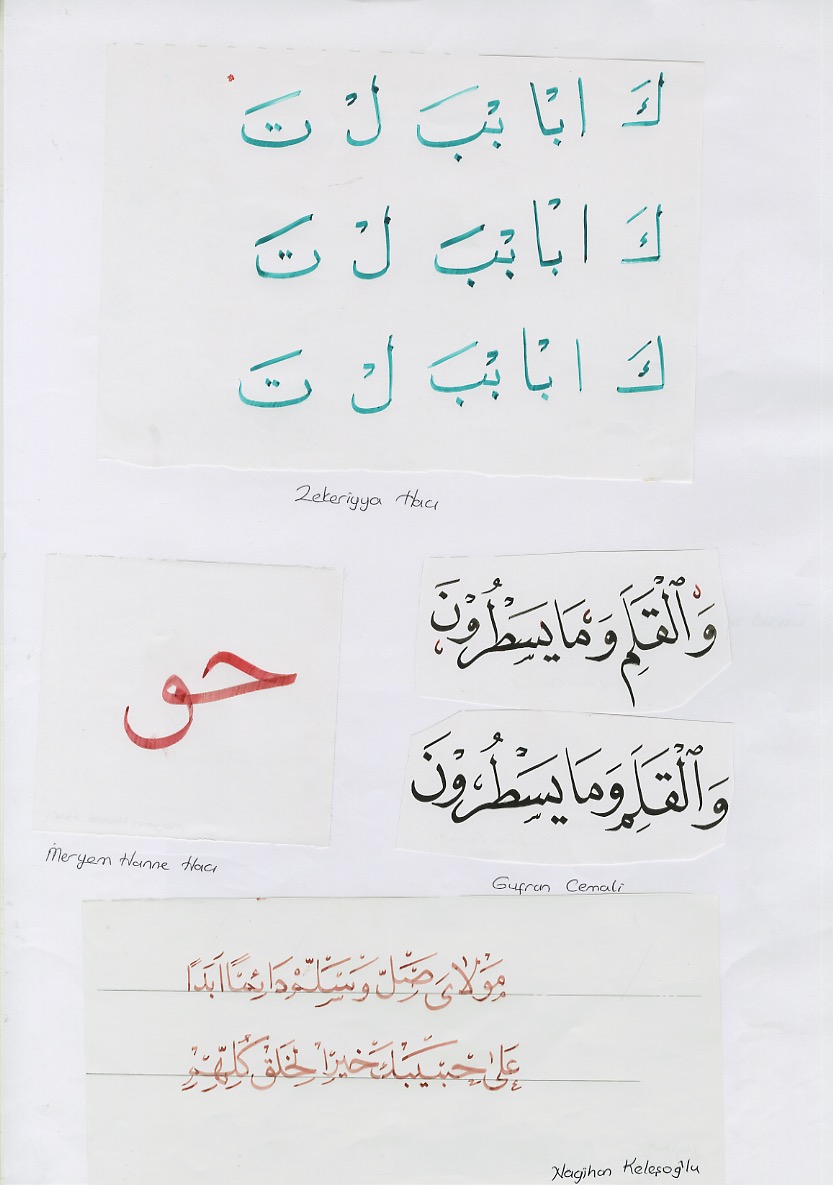 كَ ا بْا بْبَ لْ تَ
كَ ا بْا بْبَ لْ تَ
كَ ا بْا بْبَ لْ تَ
Zekeriyya Hacı
حق
Meryem Hanne Hacı
وَٱلْقَلَمِ وَمَا يَسْطُرُونَ
وَٱلْقَلَمِ وَمَا يَسْطُرُونَ
Gufran Cemali
مَوْلَايَ صَلِّ وَسَلِّمْ دَائِمًا اَبَدًا
عَلٰى حَبِيبِكَ خَيْرِ الْخَلْقِ كُلِّهِمِ
Nagihan Keleşoğlu